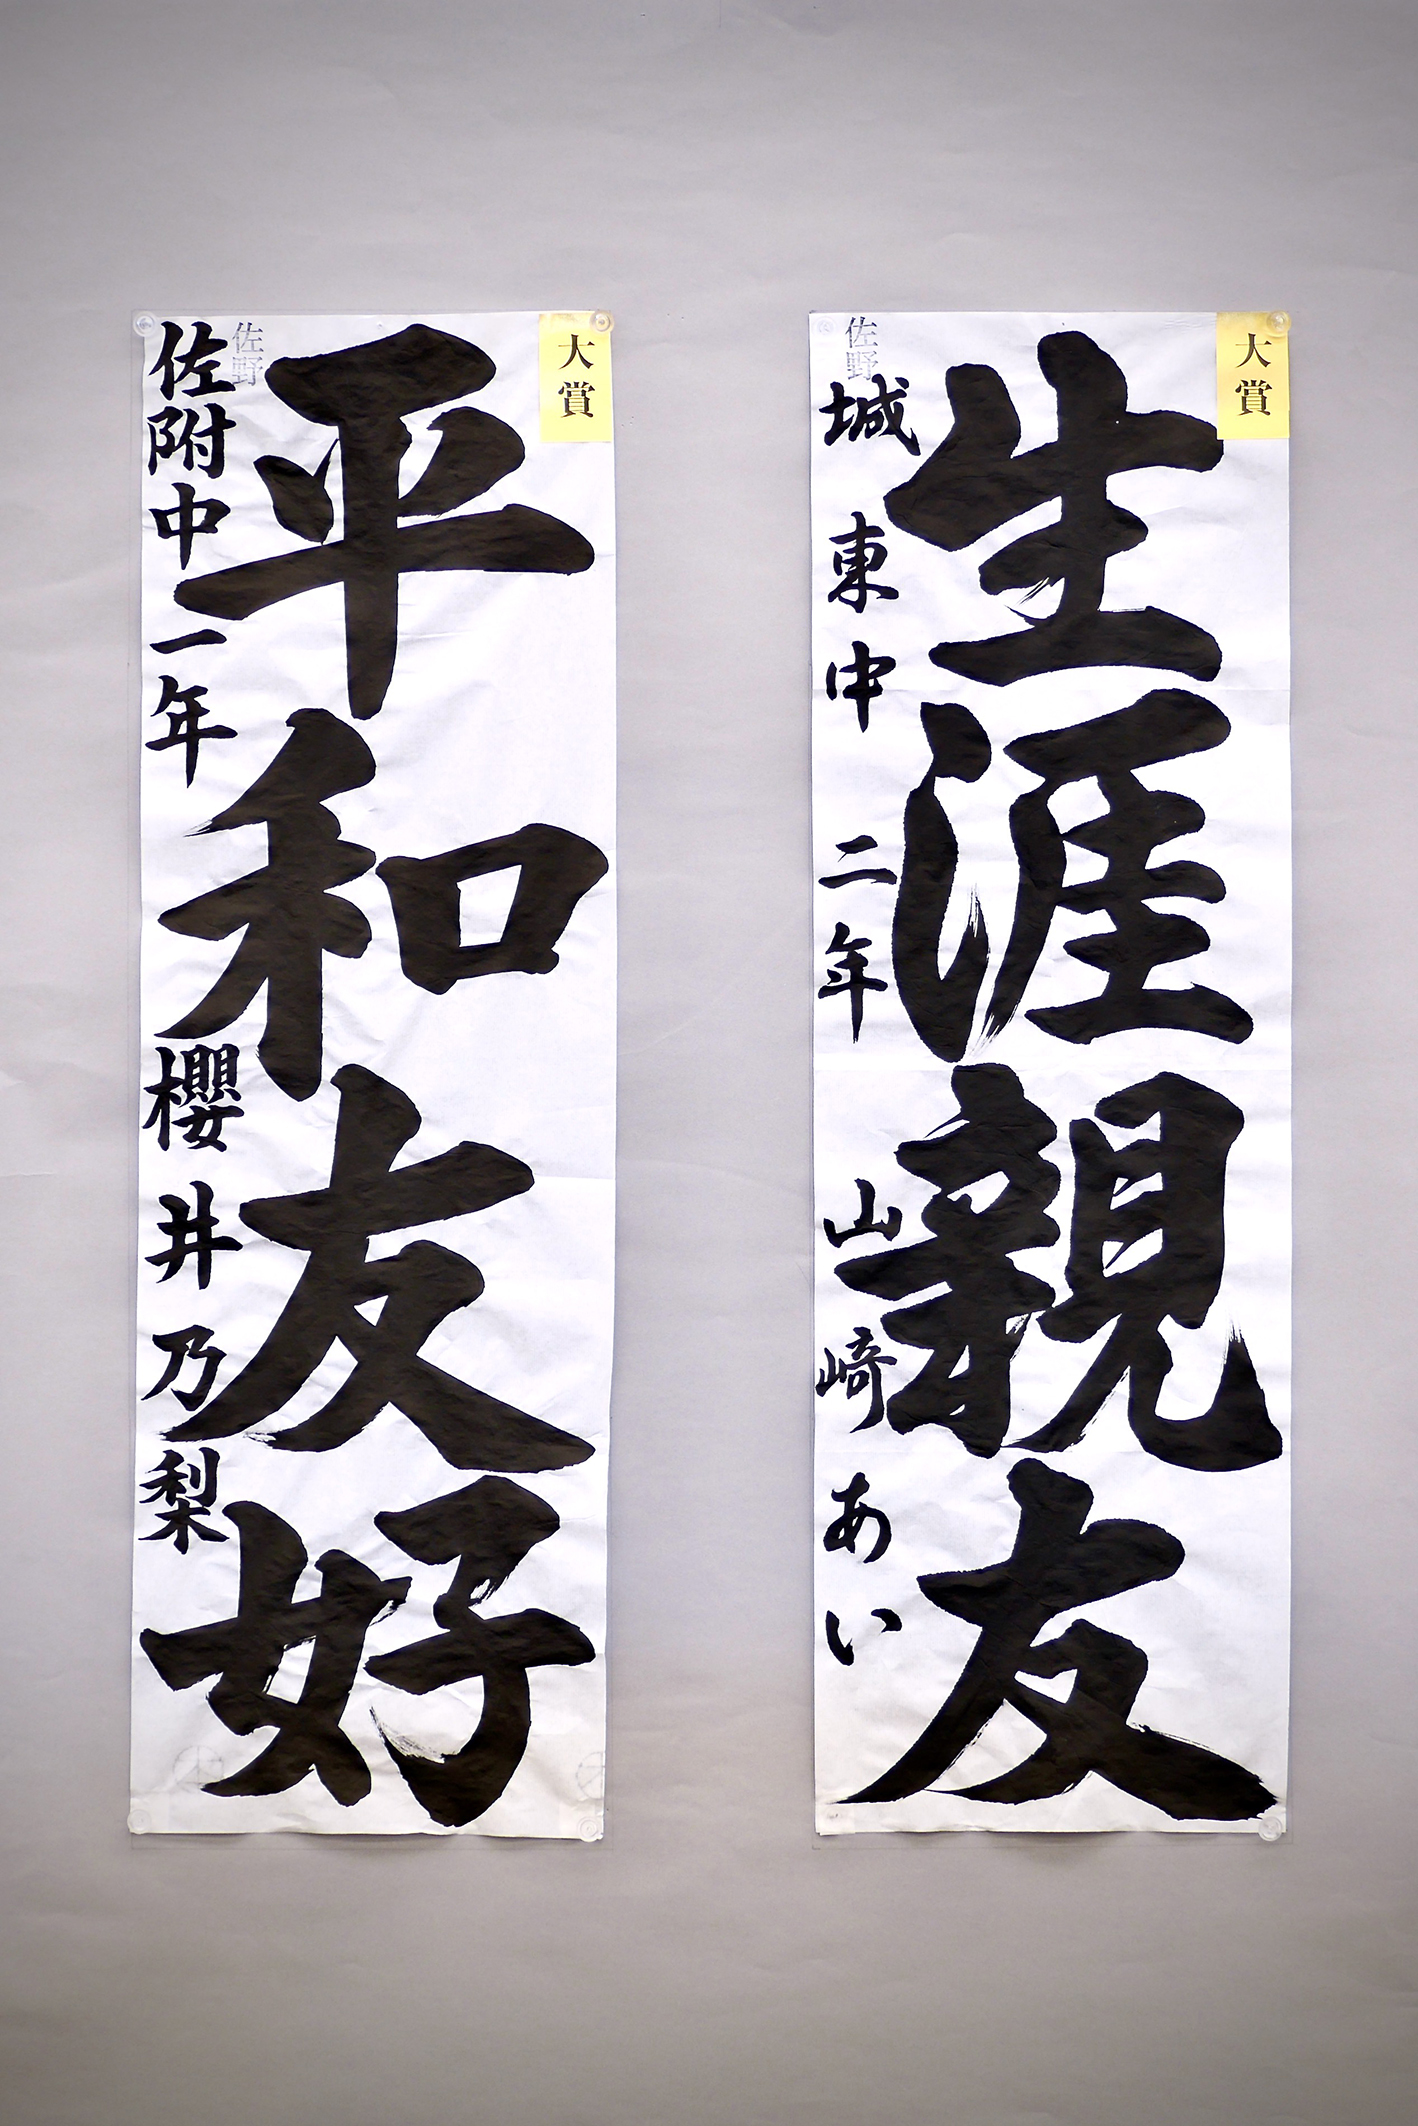 大賞
生涯親友
佐野
城東中 二年 山﨑 あい
大賞
平和友好
佐野
佐附中一年 櫻井乃梨